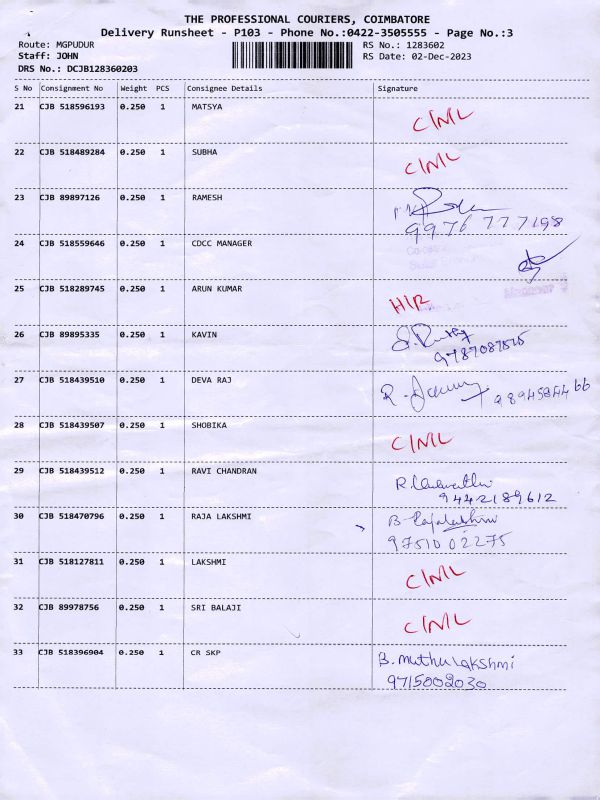 THE PROFESSIONAL COURIERS, COIMBATORE
Delivery Runsheet - P103 - Phone No.:0422-3505555 - Page No.:3
Route: MGPUDUR
RS No.: 1283602
Staff: JOHN
RS Date: 02-Dec-2023
DRS No.: DCJB128360203
S No Consignment No Weight PCS Consignee Details Signature
21 CJB 518596193 0.250 1 MATSYA C/NL
22 CJB 518489284 0.250 1 SUBHA C/NL
23 CJB 89897126 0.250 1 RAMESH
9976 777198
24 CJB 518559646 0.250 1 CDCC MANAGER
25 CJB 518289745 0.250 1 ARUN KUMAR H/R
26 CJB 89895335 0.250 1 KAVIN
27 CJB 518439510 0.250 1 DEVA RAJ R.
28 CJB 518439507 0.250 1 SHOBIKA C/NL
29 CJB 518439512 0.250 1 RAVI CHANDRAN R.
9442189612
30 CJB 518470796 0.250 1 RAJA LAKSHMI B-Rajalakshmi
9751002275
31 CJB 518127811 0.250 1 LAKSHMI C/NL
32 CJB 89978756 0.250 1 SRI BALAJI C/NL
33 CJB 518396904 0.250 1 CR SKP B. muthulakshmi
9715002030